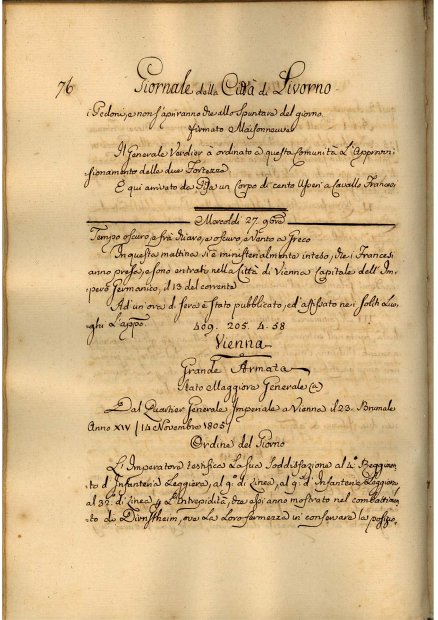 76 Giornale della Città di Livorno
i Pedoni, e non s'apriranno che allo Spuntare del giorno.
firmato Maisonneuve
Il Generale Verdier à ordinato a questa Comunità L'Approvvi
sionamento delle due Fortezze
È qui arrivato da Pisa un Corpo di cento Usseri a Cavallo Francesi
Mercoldì 27. 9bre
Tempo oscuro, e fra chiaro, e oscuro, e Vento a Greco
In questa mattina si è ministerialmente inteso, che i Francesi
anno preso, e sono entrati nella Città di Vienna Capitale dell'Im
pero Germanico, il 13 del corrente
Ad un'ora di sera è stato pubblicato, ed affissato nei soliti Luo
ghi L'appo.
409. 205. 4. 58
Vienna
Grande Armata
Stato Maggiore Generale (a)
Dal Quartier Generale Imperiale a Vienna il 23. Brumale
Anno XIV / 14 Novembre 1805/
Ordine del Giorno
L'Imperatore testifica La Sua Soddisfazione al 4º Reggimen
to d'Infanteria Leggiera, al 9º di Linea, al 9º d'Infanteria Leggiera
al 32. di Linea p. L'Intrepidità, che essi anno mostrato nel combattimen
to di Dirnstheim, ove La Loro fermezza in conservare la posizio